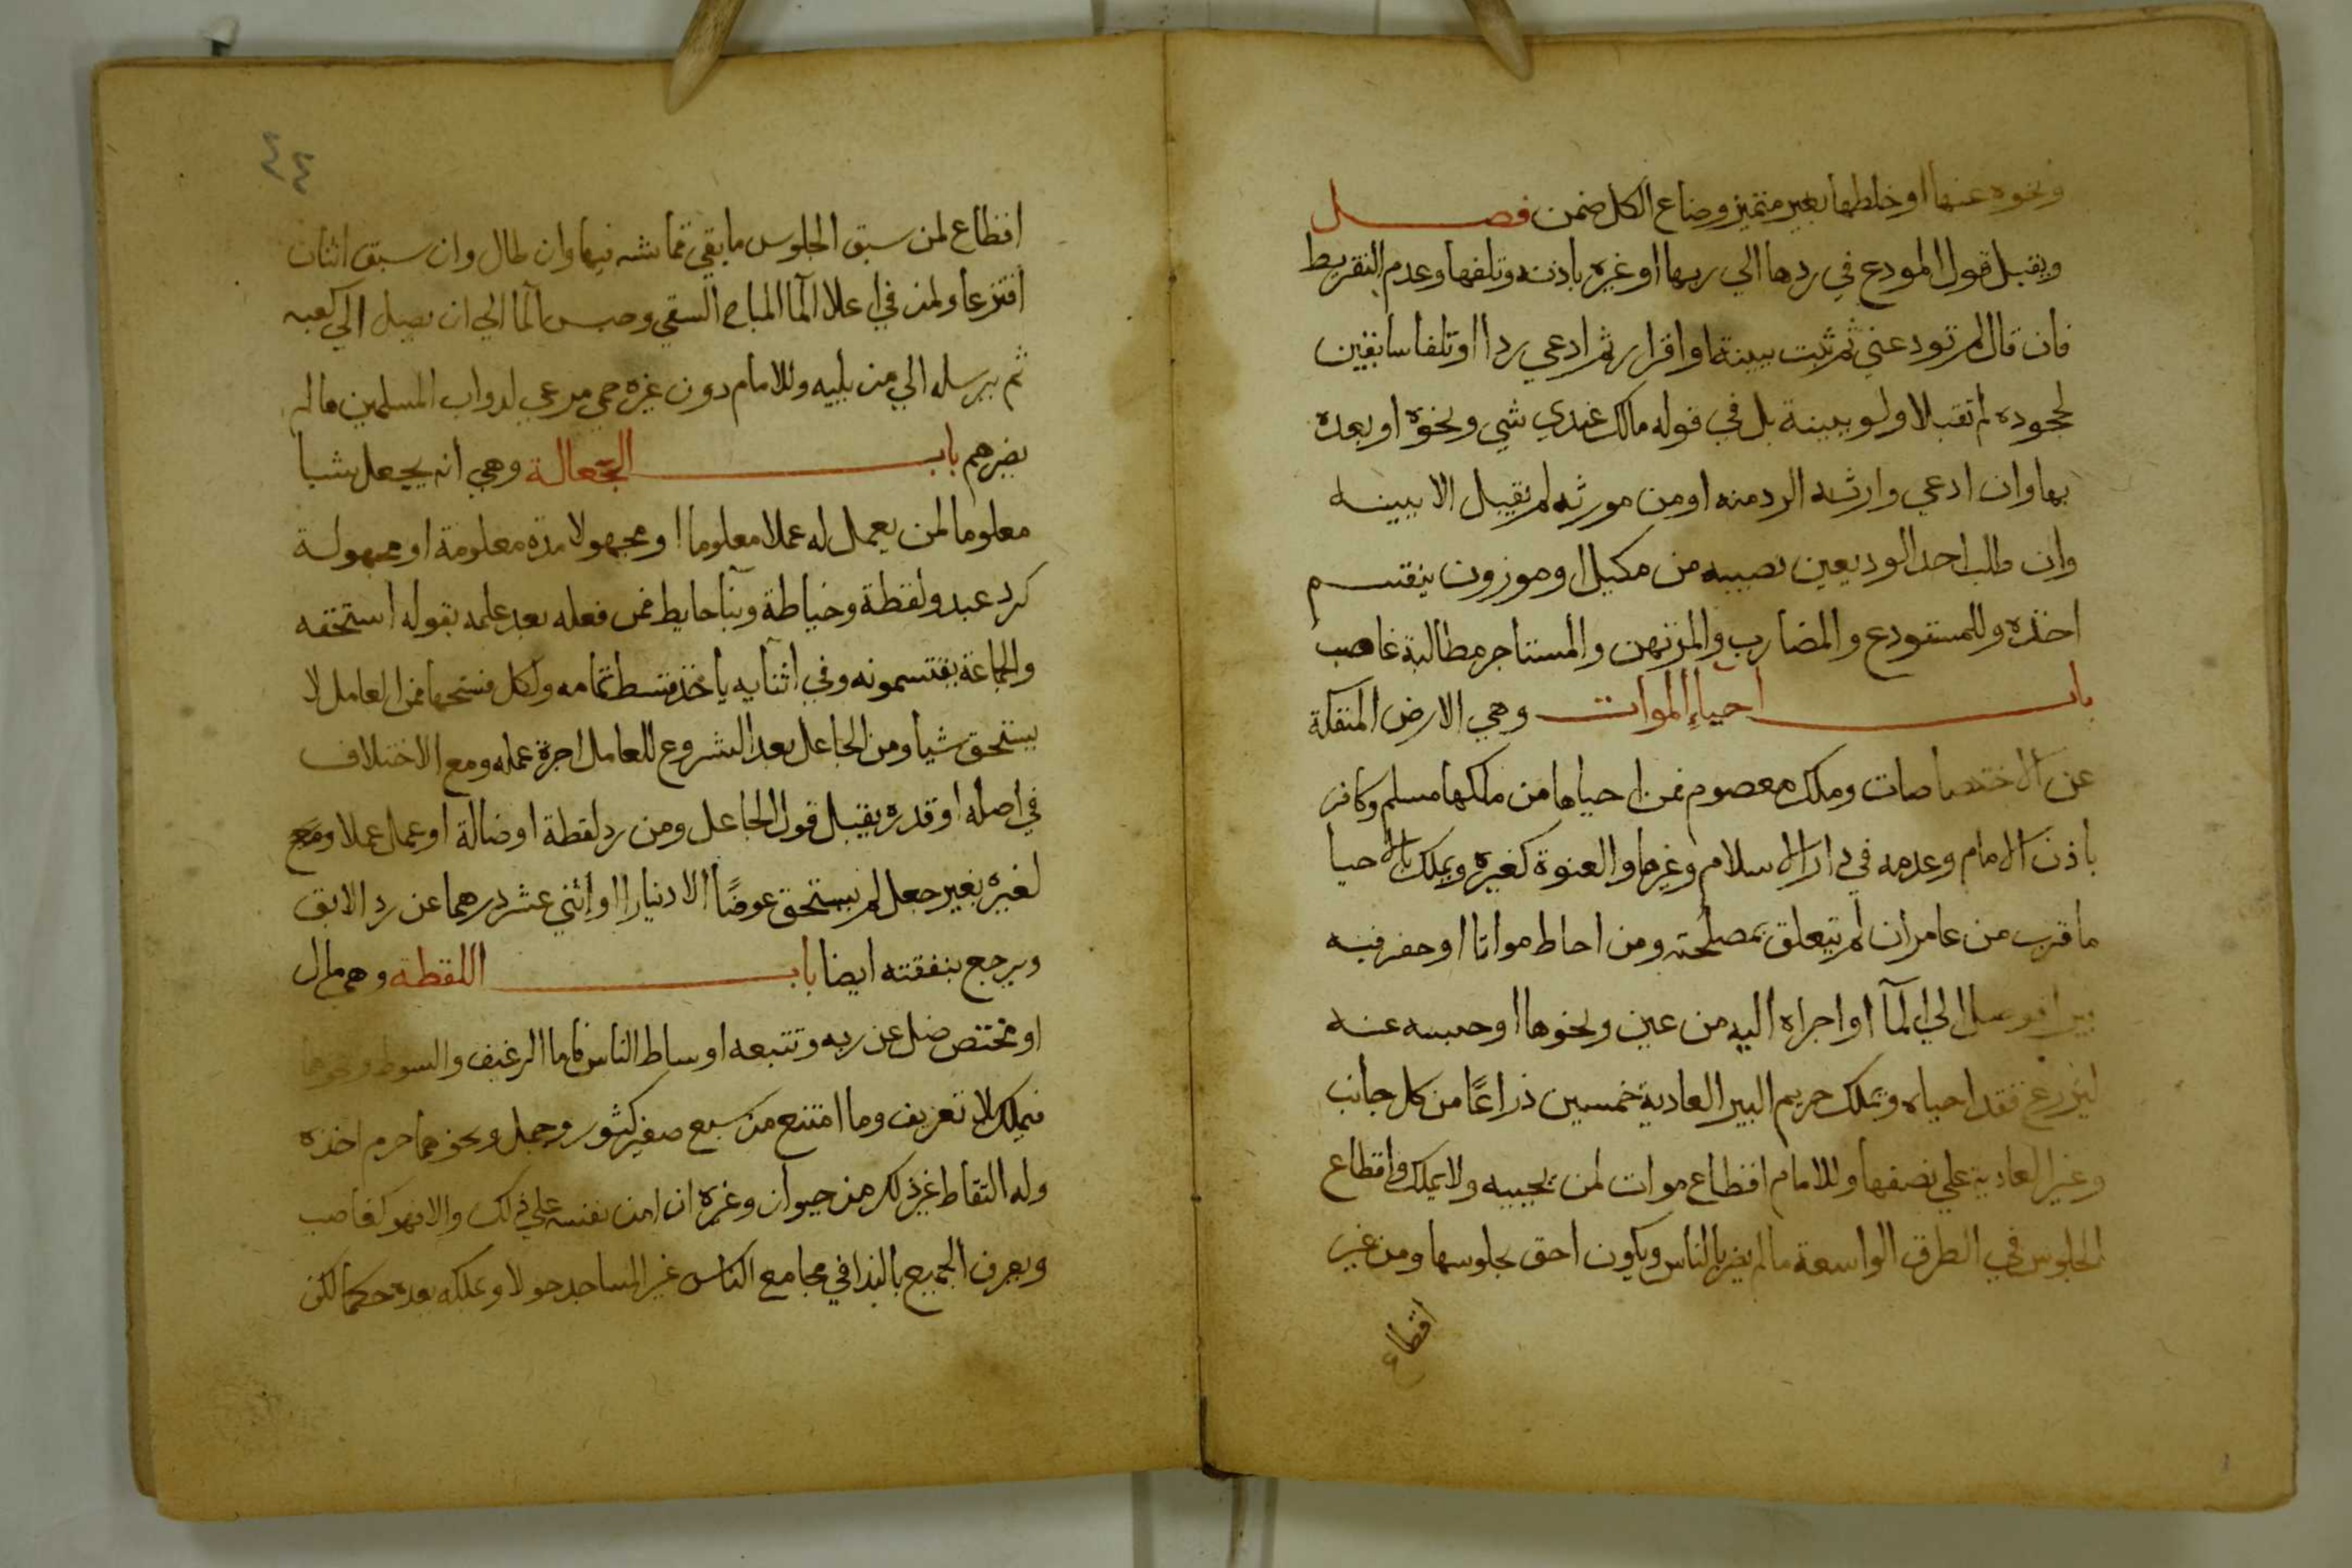 ونحوه عنها او خلطها بغير متميز وضاع الكل ضمن فصل
ويقبل قول المودع في ردها الي ربها او غيره باذنه وتلفها وعدم التفريط
فان قال لم تودعني ثم ثبت ببينة او اقرار ثم ادعي ردا او تلفا سابقين
لجحوده لم تقبلا ولو ببينة بل في قوله مالك عندي شي ونحوه او بعده
بها وان ادعي وارثه الرد منه او من مورثه لم يقبل الا ببينه
وان طلب احد الوديعين نصيبه من مكيل او موزون ينقسم
اخذه وللمستودع والمضارب والمرتهن والمستاجر مطالبة غاصب
باب احياء الموات وهي الارض المنفكة
عن الاختصاصات وملك معصوم فمن احياها من ملكها مسلم وكافر
باذن الامام وعدمه في دار الاسلام وغيرها والعنوة كغيره ويملك بالاحيا
ما قرب من عامر ان لم يتعلق بمصلحته ومن احاط مواتا او حفر فيه
بيرا فوصل الي الما او اجراه اليه من عين ونحوها او حبسه عنه
ليزرع فقد احياه ويملك حريم البير العادية خمسين ذراعًا من كل جانب
وغير العادية علي نصفها وللامام اقطاع موات لمن يحييه ولا يملكه واقطاع
الجلوس في الطرق الواسعة ما لم يضر بالناس ويكون احق بجلوسها ومن غير
اقطاع
٤٤
اقطاع لمن سبق الجلوس ما بقي قماشه فيها وان طال وان سبق اثنان
اقترعا ولمن في اعلا الما المباح السقي وحبس الما الي ان يصل الي كعبه
ثم يرسله الي من يليه وللامام دون غيره حمي مرعي لدواب المسلمين ما لم
يضرهم باب الجعالة وهي انه يجعل شيا
معلوما لمن يعمل له عملا معلوما او مجهولا مدة معلومة او مجهولة
كرد عبد ولقطة وخياطة وبنا حايط فمن فعله بعد علمه بقوله استحقه
والجماعة يقتسمونه وفي اثنايه ياخذ قسط تمامه ولكل فسخها فمن العامل لا
يستحق شيا ومن الجاعل بعد الشروع للعامل اجرة عمله ومع الاختلاف
في اصله او قدره يقبل قول الجاعل ومن رد لقطة او ضالة او عمل عملا ومع
لغيره بغير جعل لم يستحق عوضًا الا دنيارا او اثني عشر درهما عن رد الابق
ويرجع بنفقته ايضا باب اللقطة وهي مال
او مختص ضل عن ربه وتتبعه اوساط الناس فاما الرغيف والسوط ونحوها
فيملك بلا تعريف وما امتنع من سبع صغير كثور وجمل ونحوهما حرم اخذه
وله التقاط غير ذلك من حيوان وغيره ان امن نفسه علي ذلك والا فهو كغاصب
ويعرف الجميع بالندا في مجامع الناس غير المساجد حولا ويملكه بعده حكما لكن